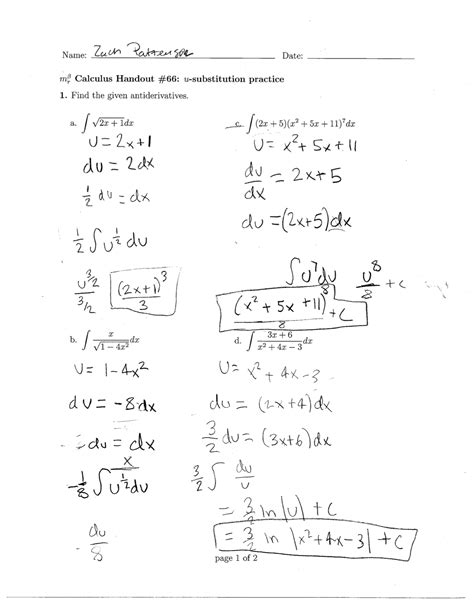 Name: Zach Date:
Calculus Handout #66: u-substitution practice
1. Find the given antiderivatives.
a. ∫ √(2x + 1)dx
U = 2x+1
du = 2dx
1/2 du = dx
1/2 ∫ u^(1/2) du
u^(3/2) / (3/2) (2x+1)^3 / 3
c. ∫ (2x + 5)(x² + 5x + 11)⁷dx
U = x² + 5x + 11
du/dx = 2x+5
du = (2x+5)dx
∫ U⁷du U⁸/8 + C
(x² + 5x + 11)⁸ / 8 + C
b. ∫ x/√(1 − 4x²) dx
U = 1-4x²
du = -8dx
du = dx
x
-1/8 ∫ U^(1/2) du
du/8
d. ∫ (3x + 6)/(x² + 4x − 3) dx
U = x² + 4x -3
du = (2x+4)dx
3/2 du = (3x+6)dx
3/2 ∫ du/u
= 3/2 ln |u| + C
= 3/2 ln |x²+4x-3| + C
page 1 of 2